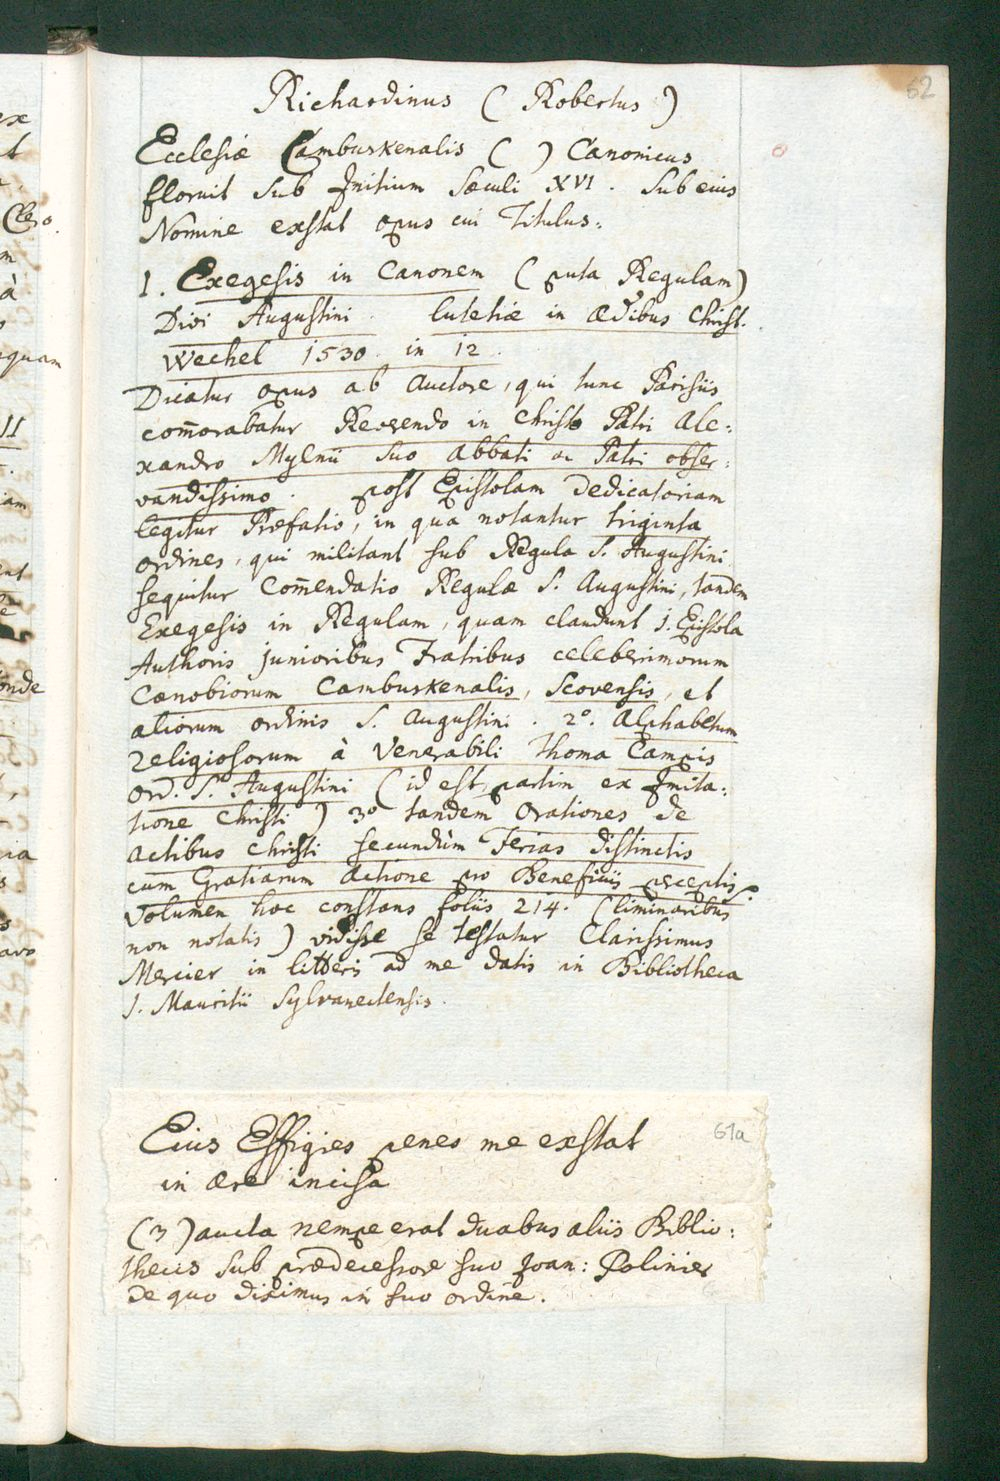 62
Richardinus ( Robertus )
Ecclesiæ Cambuskenalis ( ) Canonicus
floruit sub Initium sæculi XVI. sub eius
Nomine exstat opus cui Titulus:
1. Exegesis in Canonem ( puta Regulam)
Divi Augustini. lutetiæ in ædibus Christ.
Wechel 1530. in 12.
Dicatur opus ab auctore, qui tunc Parisiis
com̄orabatur Reverendo in Christo Patri Ale:
xandro Mylnii suo abbati ac Patri obser:
vandissimo. post Epistolam dedicatoriam
legitur Præfatio, in qua notantur triginta
ordines, qui militant sub Regula S. Augustini
sequitur Com̄endatio Regulæ S. Augustini, tandem
Exegesis in Regulam, quam claudunt 1. Epistola
Authoris junioribus Fratribus celeberimorum
Cænobiorum Cambuskenalis, Scovensis, et
aliorum ordinis S. Augustini. 2º. Alphabetum
religiosorum à Venerabili Thoma Campis
ord. S. Augustini ( id est partim ex Imita:
tione Christi ) 3º tandem Orationes de
actibus Christi secundùm Ferias distinctis
cum Gratiarum actione pro Beneficiis perceptis.
Volumen hoc constans foliis 214. ( liminaribus
non notatis ) vidisse se testatur Clarissimus
Mercier in litteris ad me datis in Bibliotheca
S. Mauritii Sylvanectensis.
61a
Eius Effigies penes me exstat
in ære incisa
(3) aucta nempe erat duabus aliis Biblio:
thecis sub prædecessore suo Joan: Polinier
de quo diximus in suo ordine.